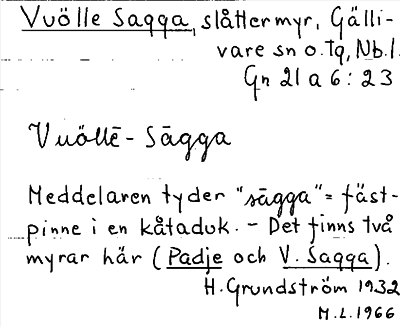 Vuölle Sagga, slåttermyr, Gälli-
vare sn o. tg, Nb. l.
Gn 21 a 6:23
Vuöllē - Sāgga
Meddelaren tyder "sāgga" = fäst-
pinne i en kåtaduk. - Det finns två
myrar här (Padje och V. Sagga).
H. Grundström 1932
M.L. 1966